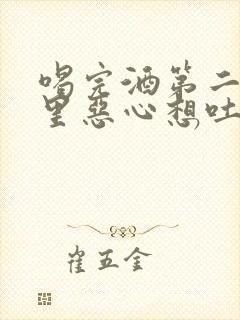 喝完酒第二
里恶心想吐
崔五金